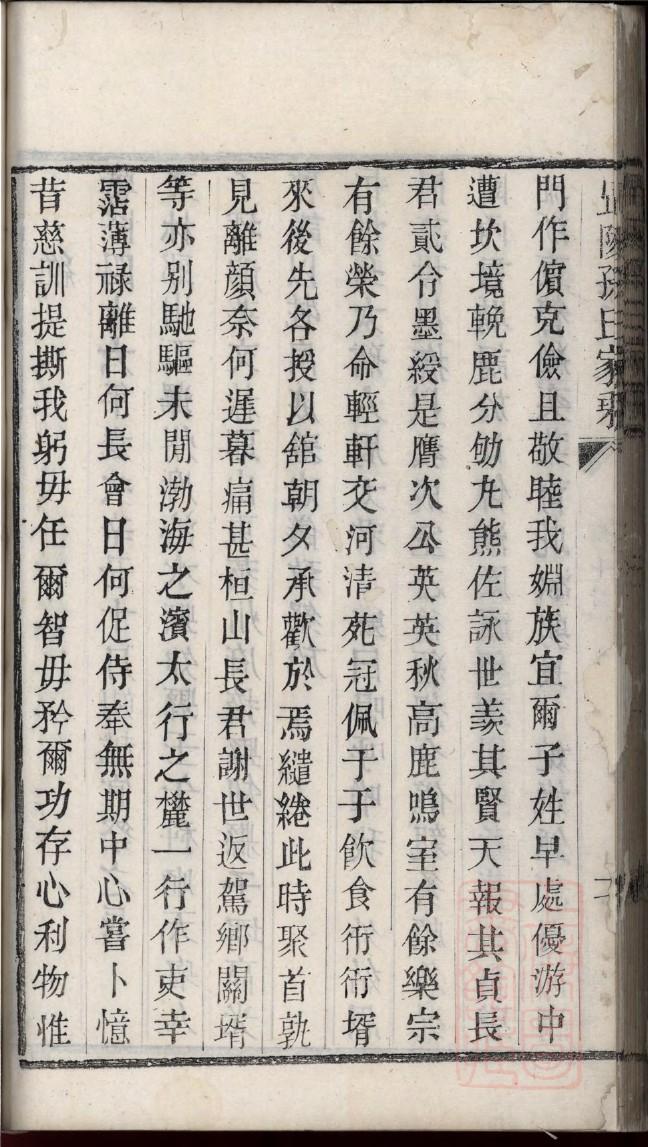 孫氏家乘
門作儐克儉且敬睦我婣族宜爾子姓早處優游中
遭坎境輓鹿分劬丸熊佐詠世羨其賢天報其貞長
君貳令墨綬是膺次公英英秋高鹿鳴室有餘樂宗
有餘榮乃命輕軒交河清苑冠佩于于飲食衎衎壻
來後先各授以舘朝夕承歡於焉繾綣此時聚首孰
見離顔奈何遲暮痛甚桓山長君謝世返駕鄉關壻
等亦别馳驅未閒渤海之濱太行之麓一行作吏幸
霑薄禄離日何長會日何促侍奉無期中心嘗卜憶
昔慈訓提撕我躬毋任爾智毋矜爾功存心利物惟